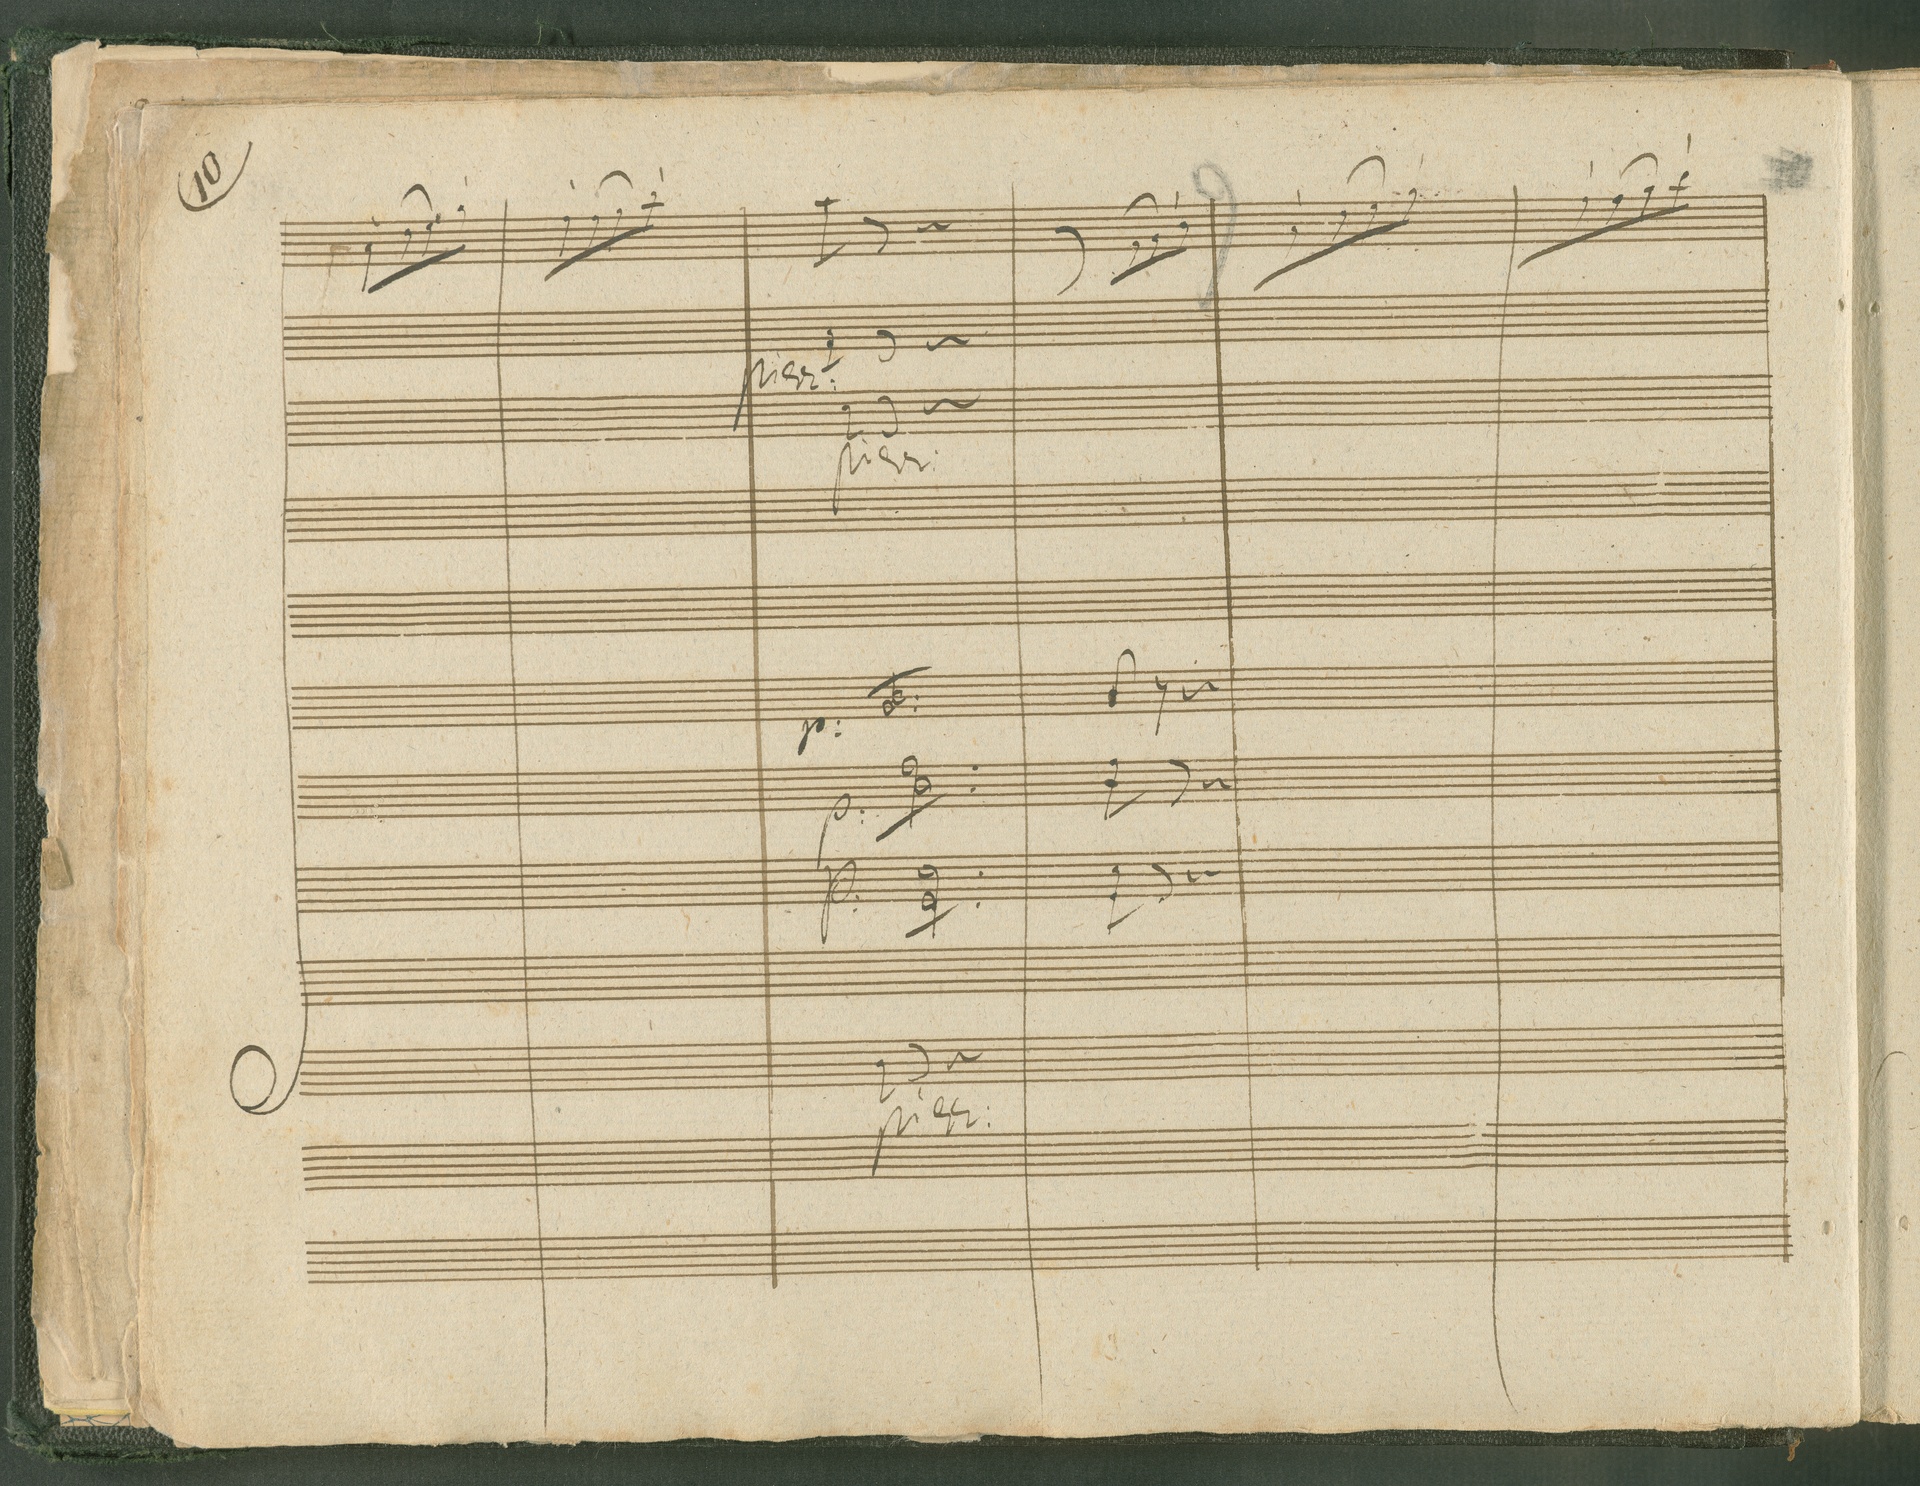 10
pizz:
pizz:
p:
p:
p:
pizz: